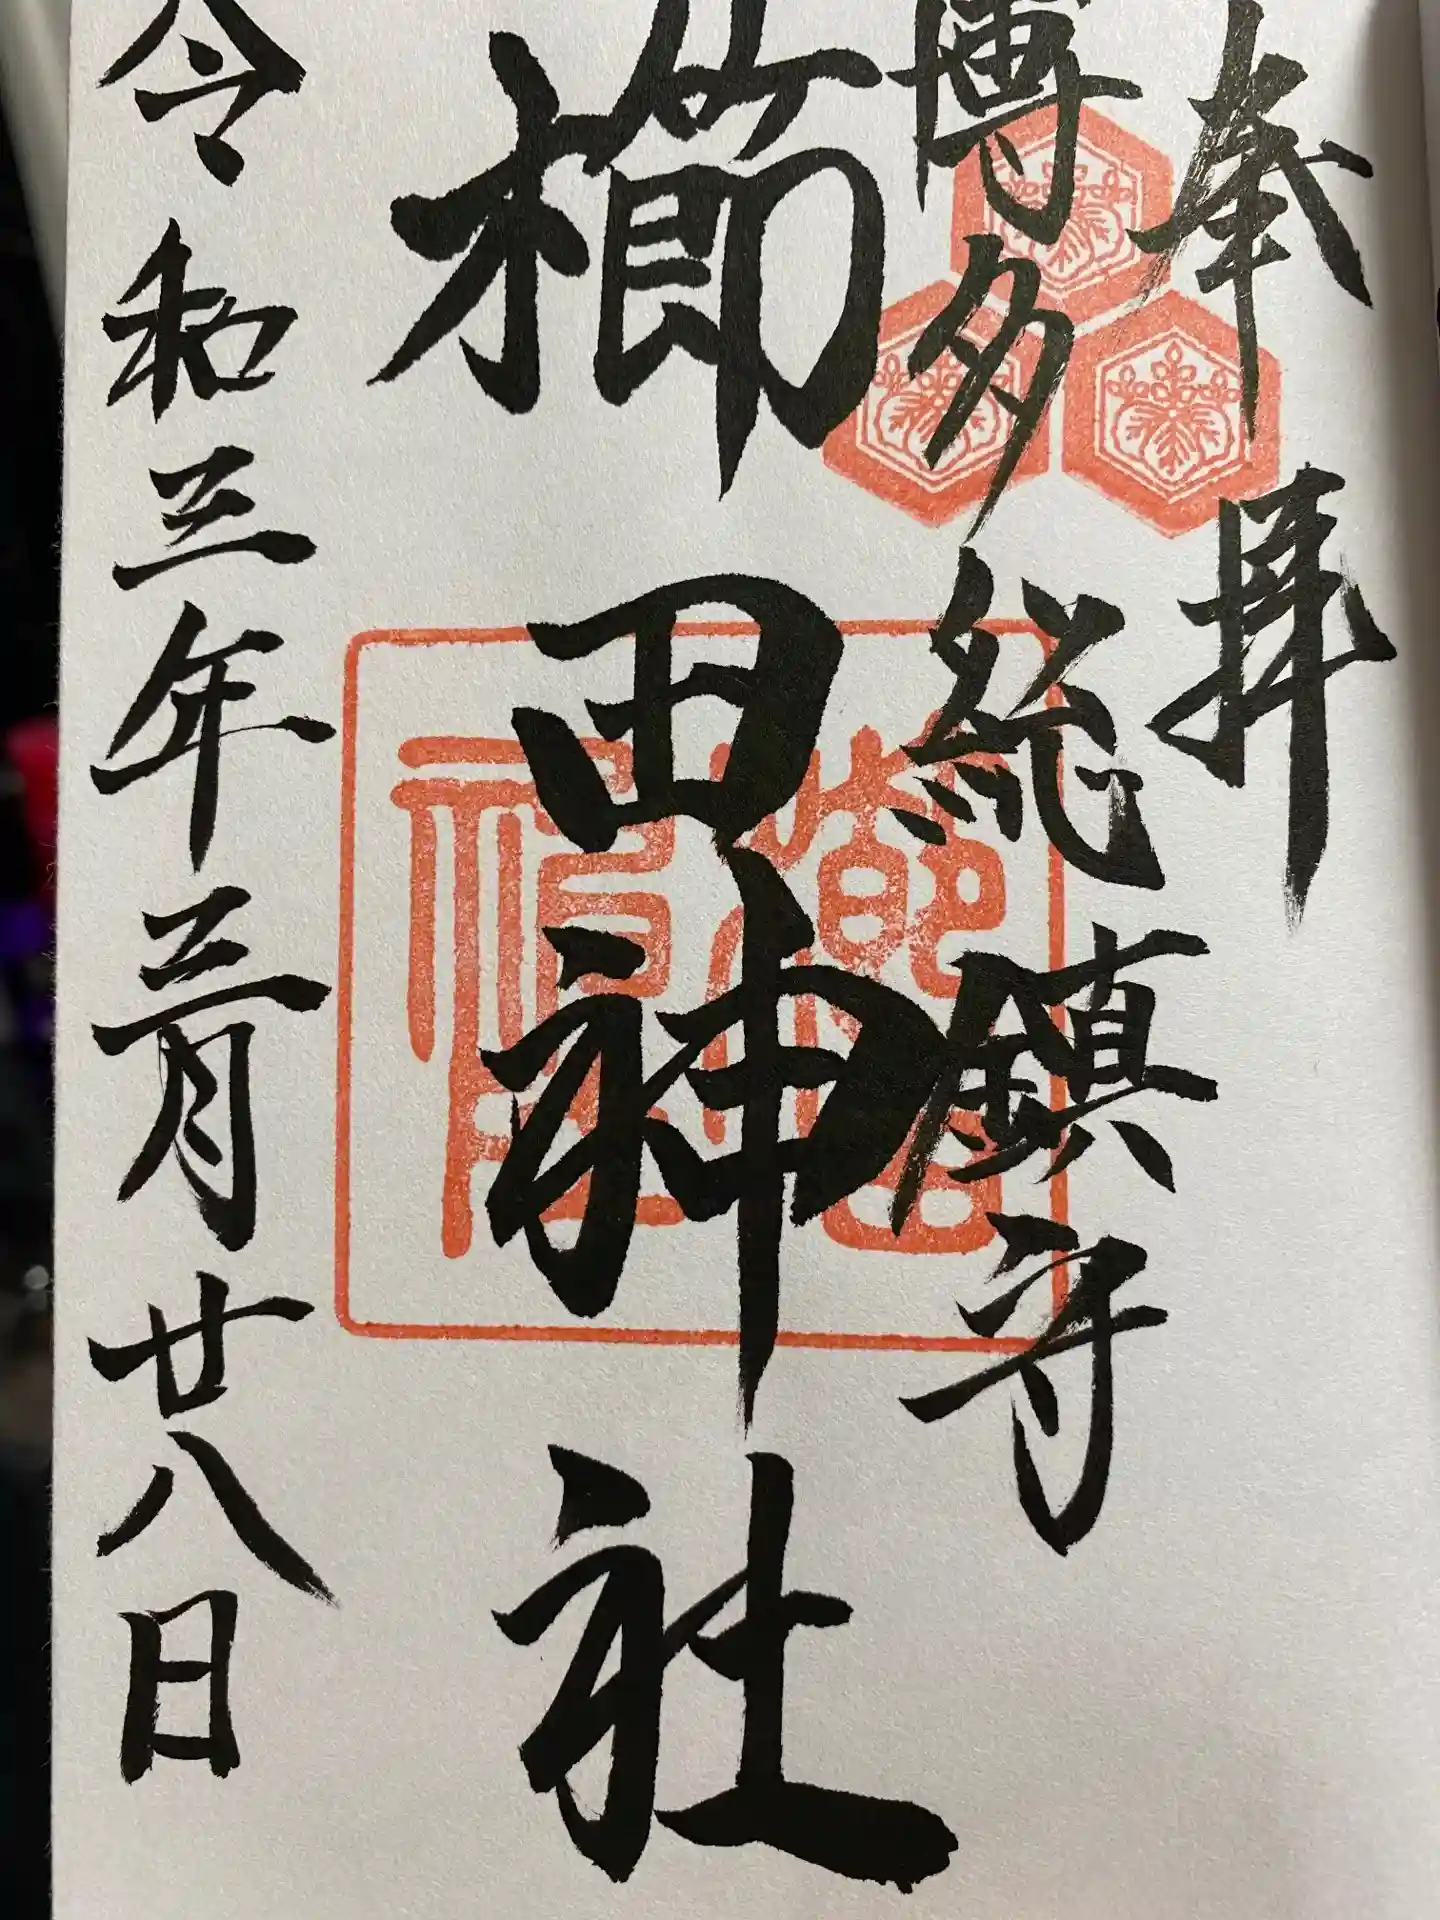 奉拝
博多総鎮守
櫛田神社
令和三年三月廿八日